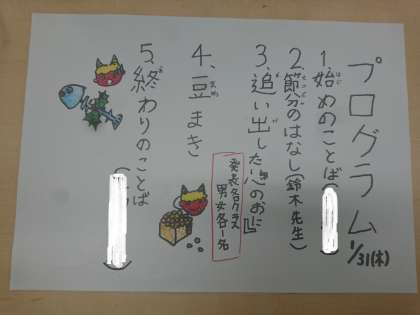 プログラム
1/31(木)
1、始めのことば(
2、節分のはなし(鈴木先生)
3、追い出したい心のおに』
発表各クラス
男女各1名
4、豆まき
5、終わりのことば